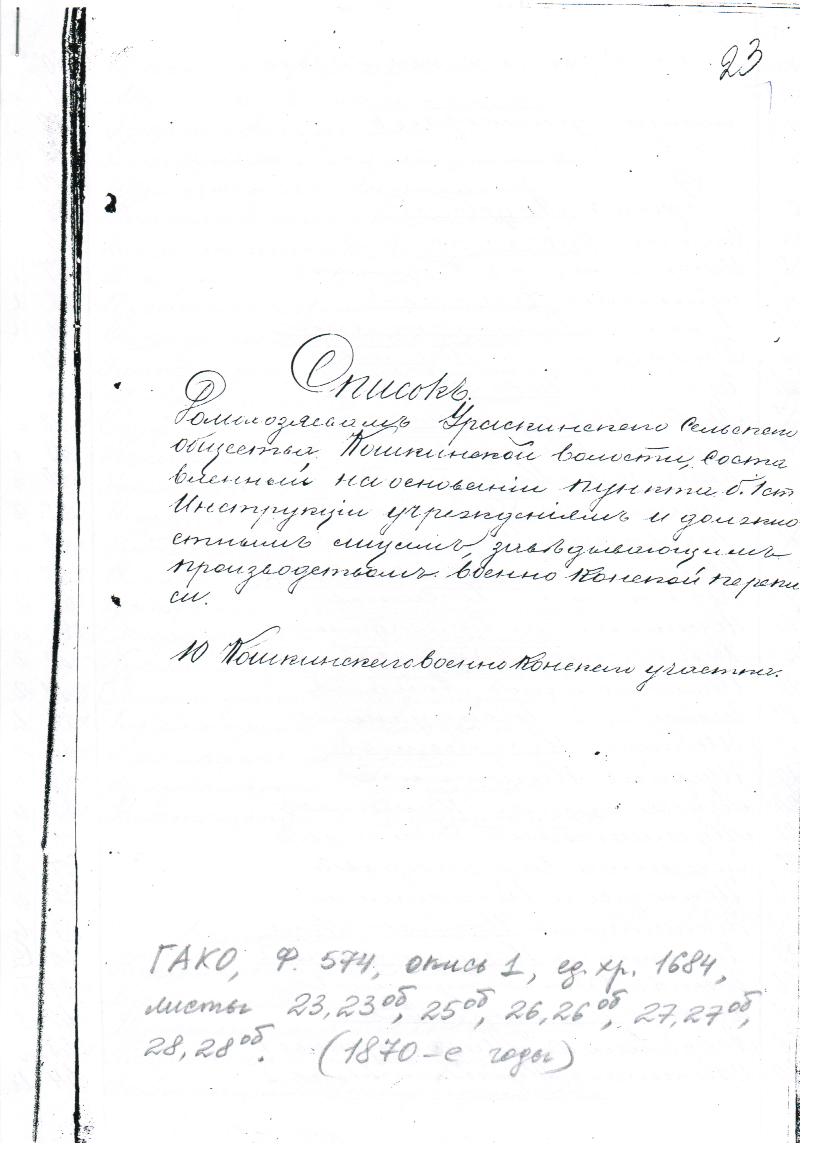 23
Списокъ.
Домохозяевамъ Ураскинскаго Сельскаго
общества, Кошкинской волости, Соста
вленный на основаніи пункта б. 1 ст
Инструкціи учрежденіямъ и должно
стнымъ лицамъ, завѣдывающимъ
производствомъ военно конской перепи
си.
10 Кошкинскаго военно Конскаго участка.
ГАКО, Ф. 574, опись 1, ед. хр. 1684,
листы 23, 23об, 25об, 26, 26об, 27, 27об,
28, 28об. (1870-е годы)